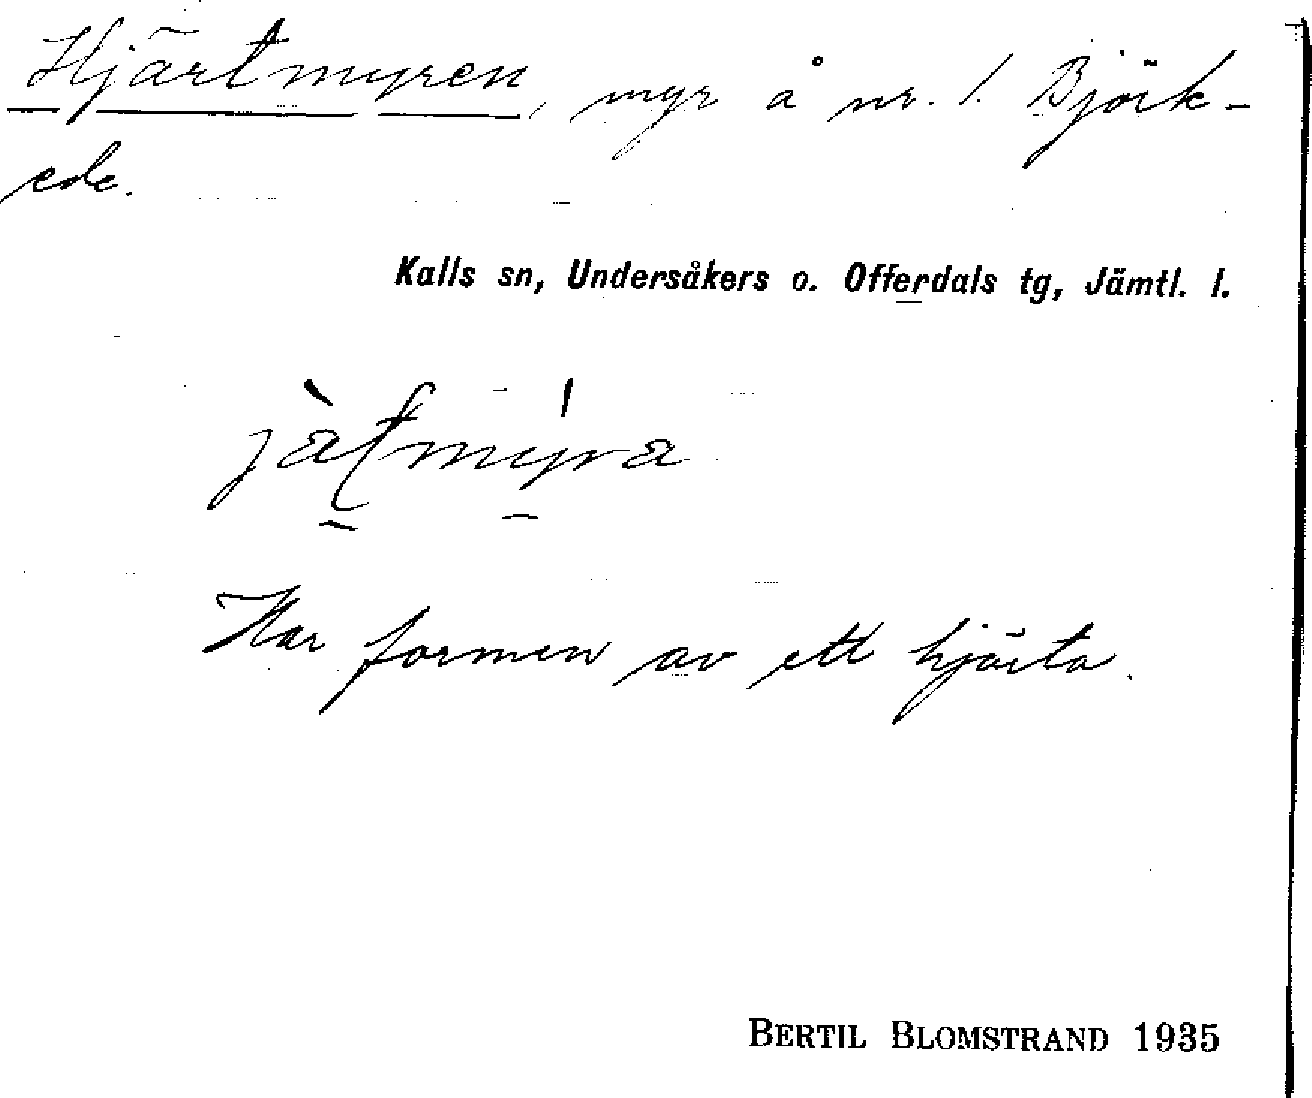 Hjärtmyren, myr å nr. 1. Björk-
ede.
Kalls sn, Undersåkers o. Offerdals tg, Jämtl. l.
Har formen av ett hjärta.
BERTIL BLOMSTRAND 1935